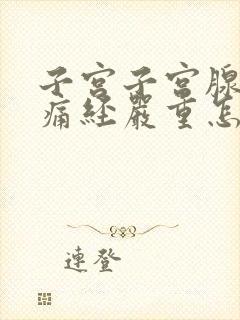 子宫子宫腺
痛经严重怎
連登